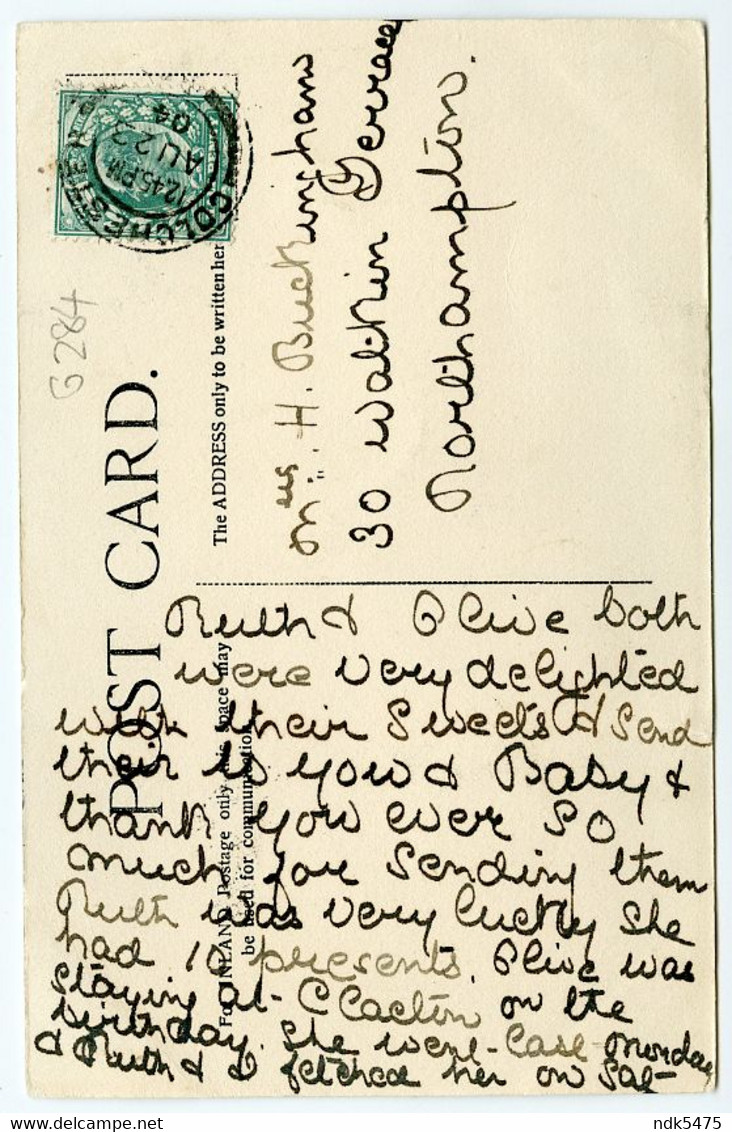 COLCHESTER
12.45.PM
AU 23
04
G284
POST CARD.
The ADDRESS only to be written her
For INLAND Postage only this space may
be used for communication
Mrs. H. Buckingham
30 Watkin Terrace
Northampton.
Ruth & Olive both
were very delighted
with their Sweets & Send
their to you & Baby &
thank you ever so
much for sending them
Ruth was very lucky She
had 10 presents. Olive was
staying at Clacton on the
birthday. She went last Monday
& Ruth & I fetched her on Sat-
ndk5475